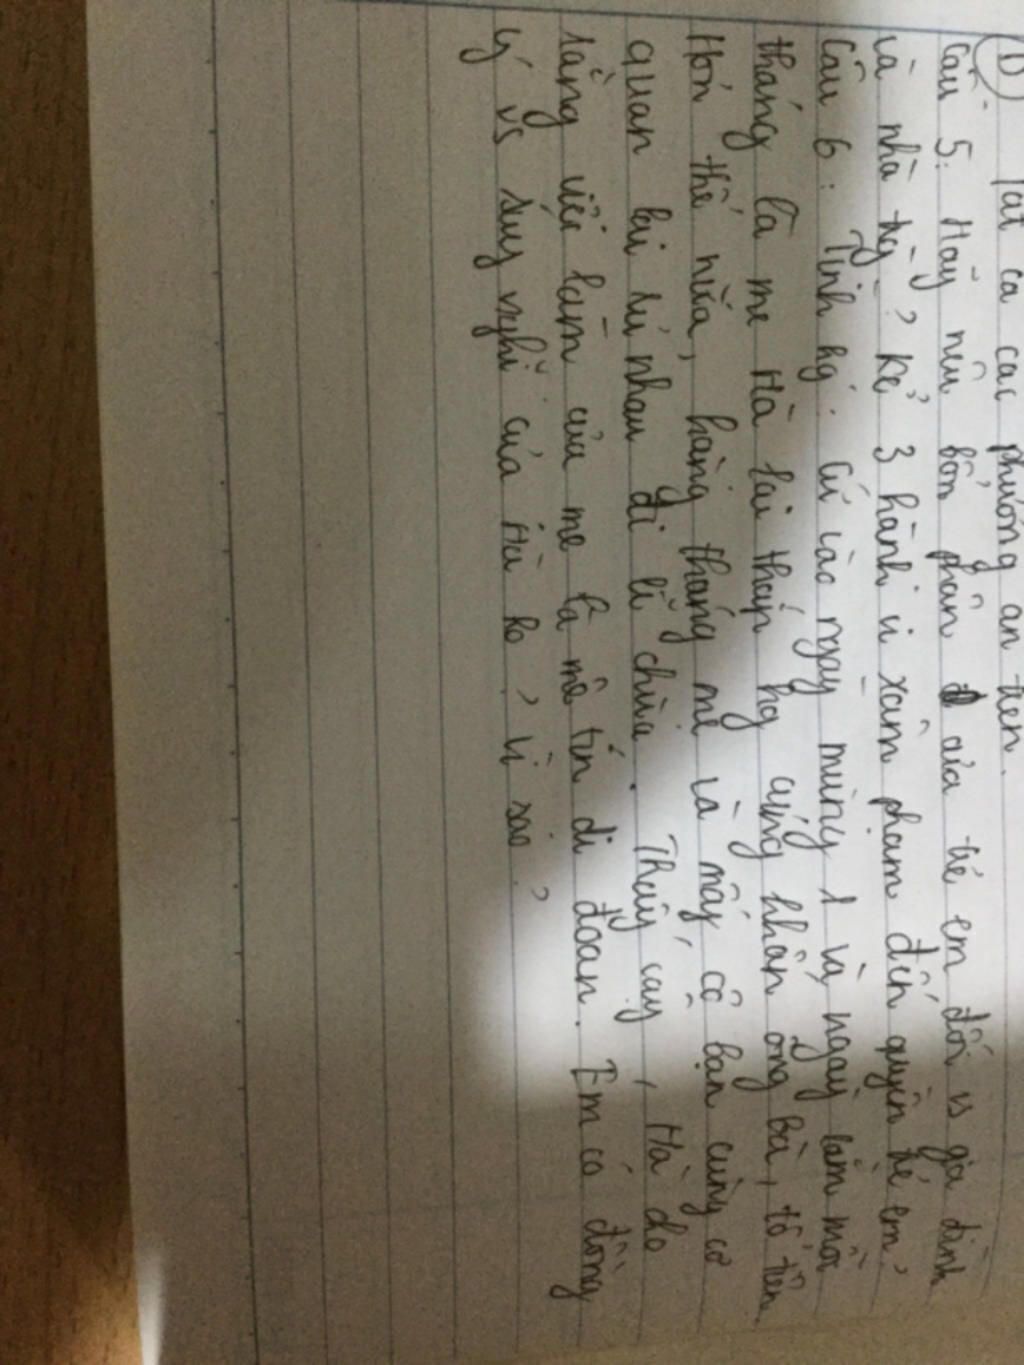 (D) Tất cả các phương án trên.
Câu 5: Hãy nêu bổn phận của trẻ em đối vs gia đình
và nhà trg? Kể 3 hành vi xâm phạm đến quyền trẻ em?
Câu 6: Tình hg: Cứ vào ngày mùng 1 và ngày rằm mỗi
tháng là mẹ Hà lại thắp hg cúng khấn ông bà, tổ tiên.
Hơn thế nữa, hàng tháng mẹ và mấy cô bạn cùng cơ
quan lại rủ nhau đi lễ chùa. Thấy vậy, Hà cho
rằng việc làm của mẹ là mê tín dị đoan. Em có đồng
ý vs suy nghĩ của Hà ko, vì sao?